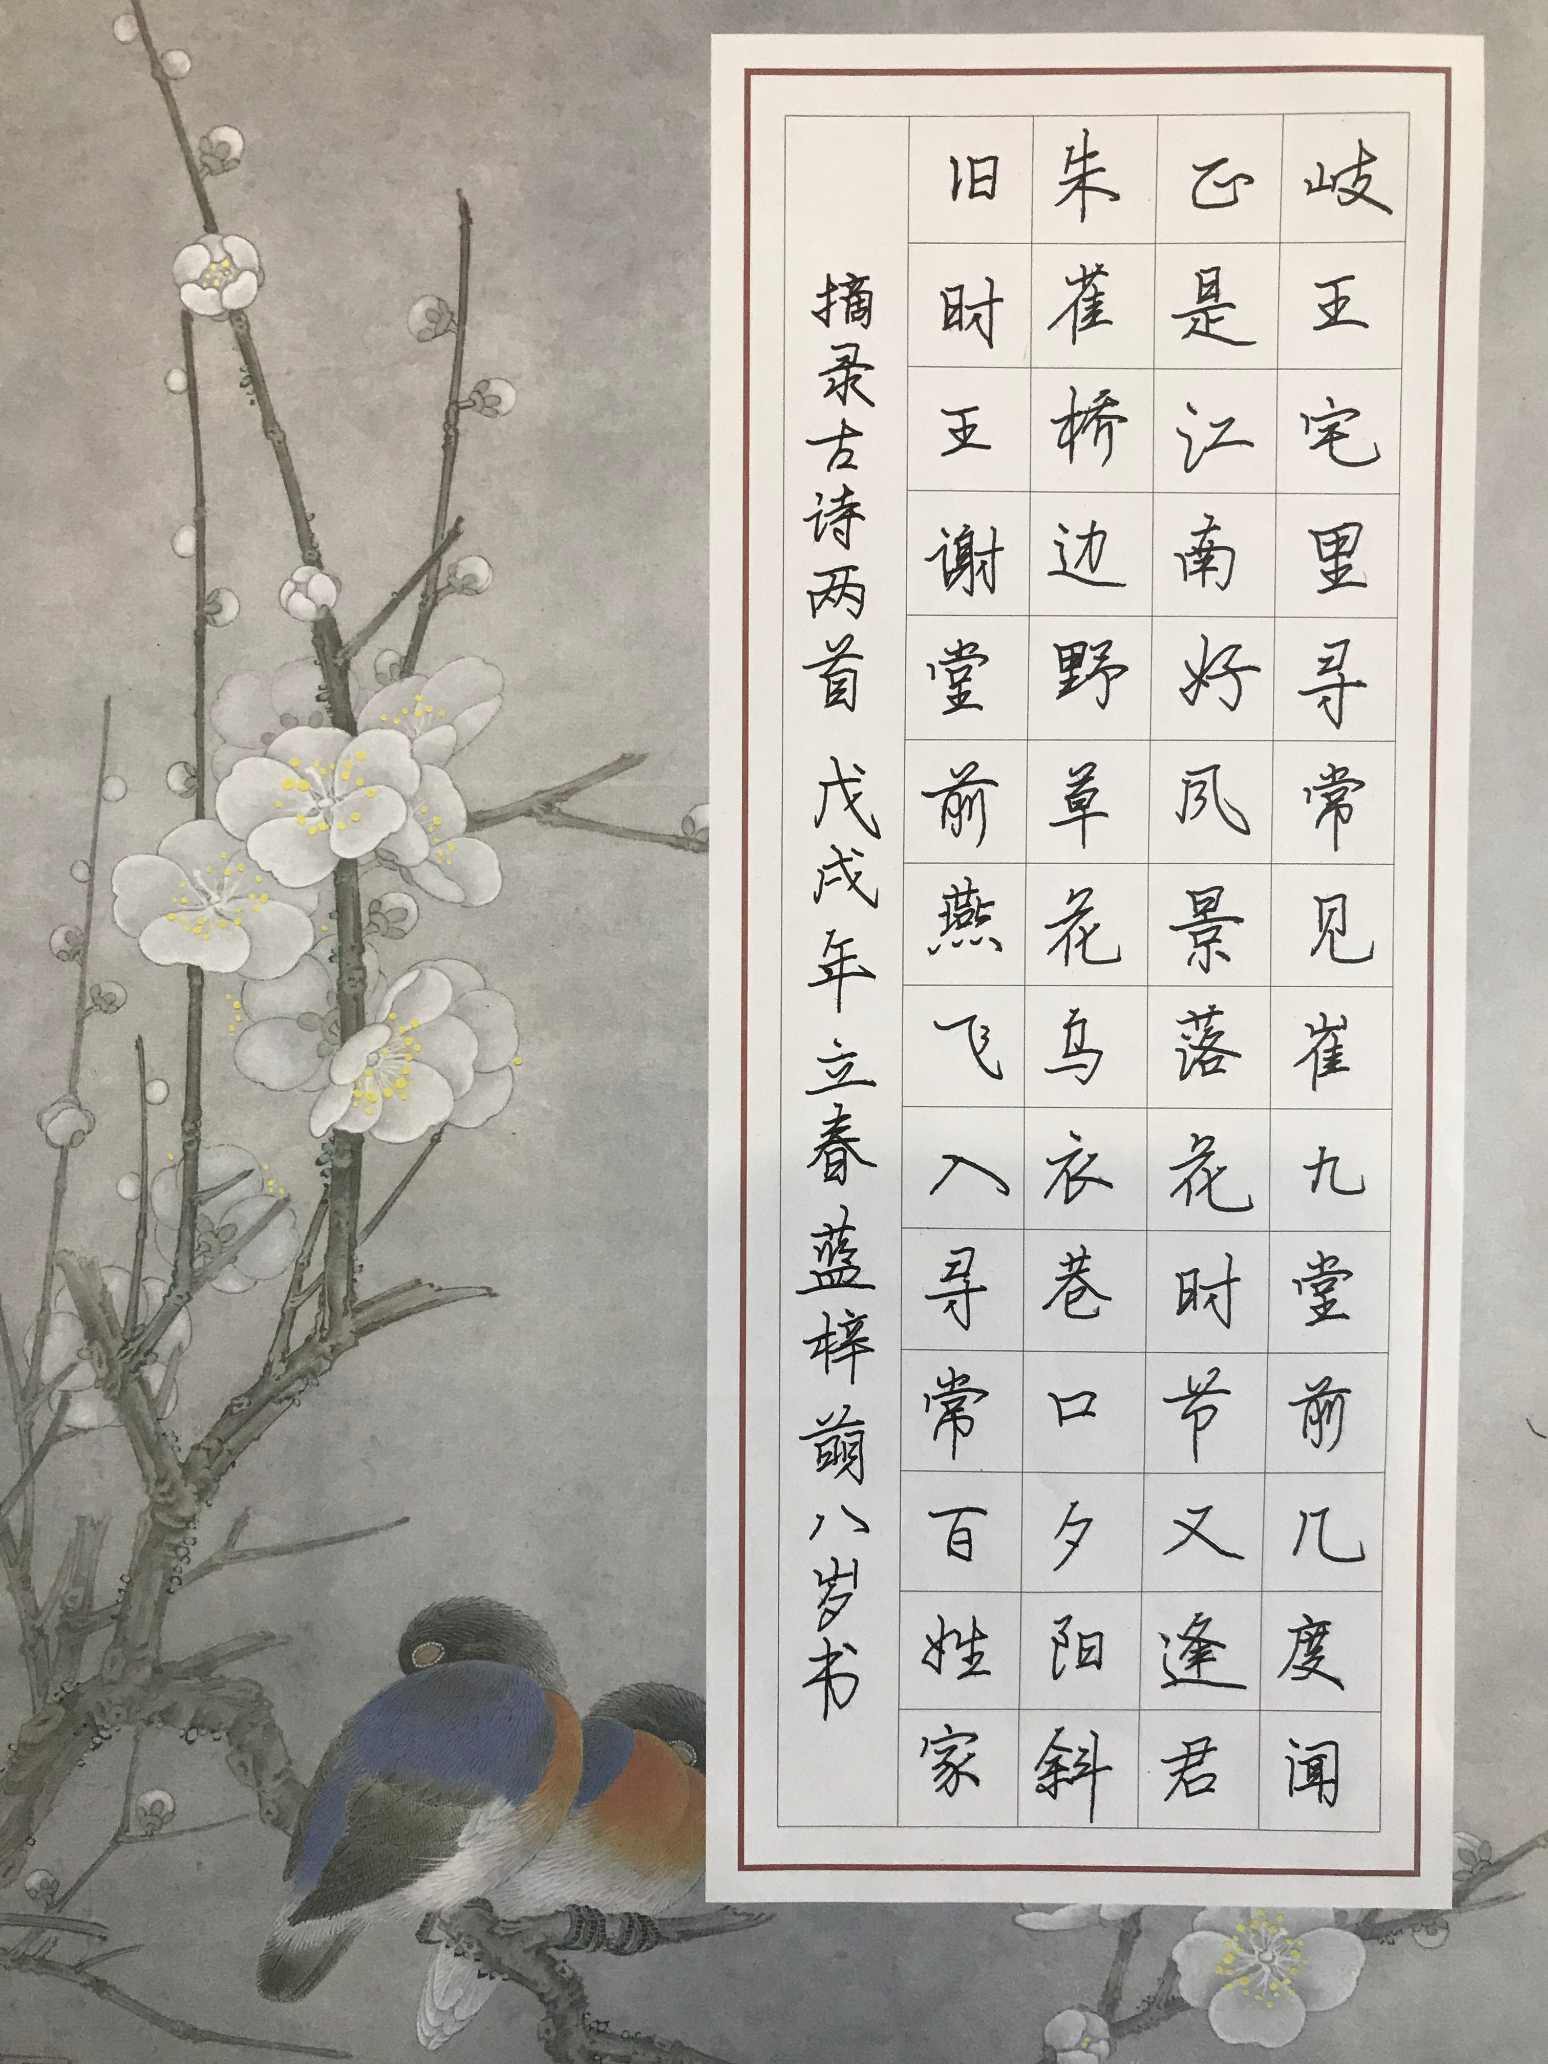 岐王宅里寻常见崔九堂前几度闻
正是江南好风景落花时节又逢君
朱雀桥边野草花乌衣巷口夕阳斜
旧时王谢堂前燕飞入寻常百姓家
摘录古诗两首 戊戌年立春蓝梓萌八岁书